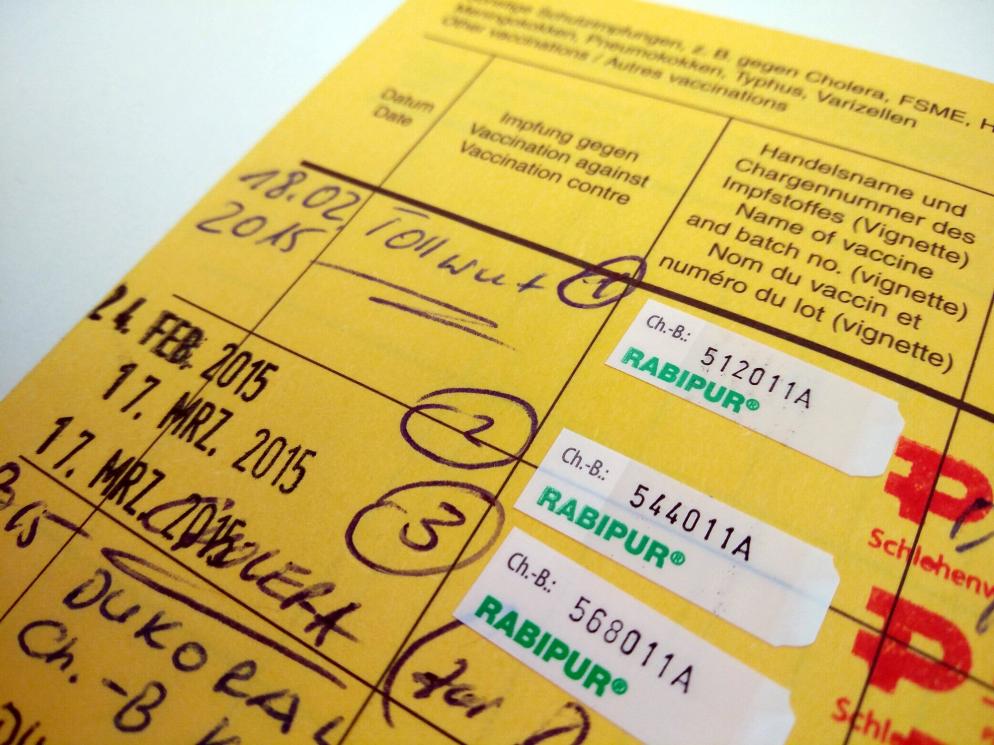 Schutzimpfungen, z. B. gegen Cholera, FSME, H
Meningokokken, Pneumokokken, Typhus, Varizellen
Other vaccinations / Autres vaccinations
Datum
Date
Impfung gegen
Vaccination against
Vaccination contre
Handelsname und
Chargennummer des
Impfstoffes (Vignette)
Name of vaccine
and batch no. (vignette)
Nom du vaccin et
numéro du lot (vignette)
18.02
2015
Tollwut 1
Ch.-B.: 512011A
RABIPUR®
24. FEB. 2015
2
Ch.-B.: 544011A
RABIPUR®
17. MRZ. 2015
3
Ch.-B.: 568011A
RABIPUR®
17. MRZ. 2015
CHOLERA
DUKORAL
Ch.-B
Schlehenv
Schl